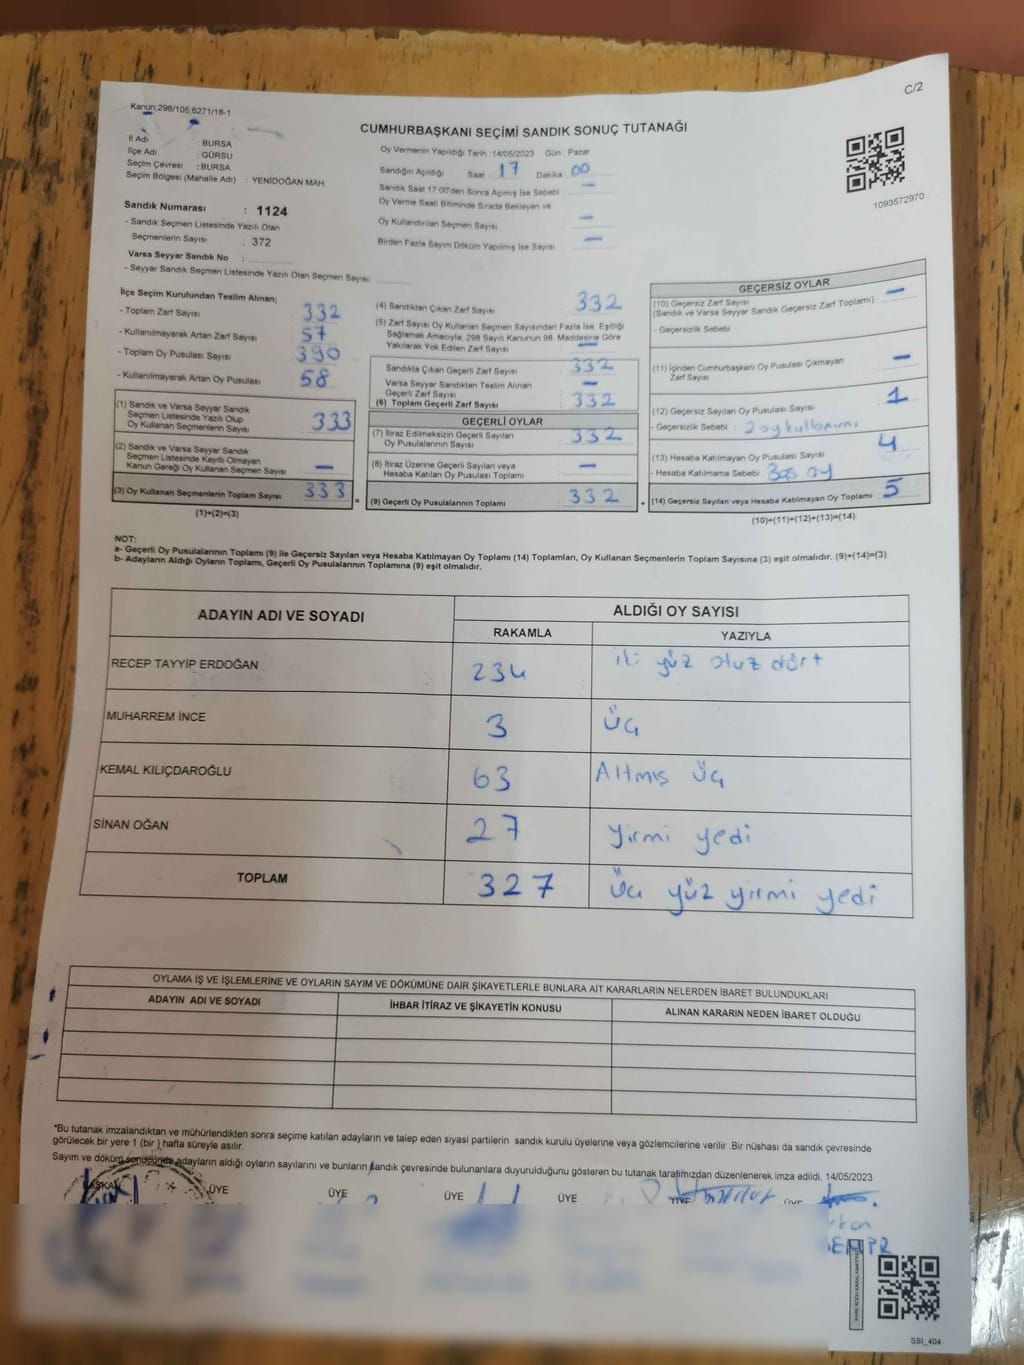 C/2
Kanun;298/105;6271/18-1
CUMHURBAŞKANI SEÇİMİ SANDIK SONUÇ TUTANAĞI
İl Adı : BURSA
İlçe Adı : GÜRSU
Seçim Çevresi : BURSA
Seçim Bölgesi (Mahalle Adı) : YENİDOĞAN MAH.
Sandık Numarası : 1124
- Sandık Seçmen Listesinde Yazılı Olan
Seçmenlerin Sayısı : 372
Varsa Seyyar Sandık No :
- Seyyar Sandık Seçmen Listesinde Yazılı Olan Seçmen Sayısı:
Oy Vermenin Yapıldığı Tarih :14/05/2023 Gün Pazar
Sandığın Açıldığı Saat : 17 Dakika 00
Sandık Saat 17:00'den Sonra Açımış İse Sebebi : —
Oy Verme Saati Bitiminde Sırada Bekleyen ve
Oy Kullandırılan Seçmen Sayısı —
Birden Fazla Sayım Döküm Yapılmış İse Sayısı —
1093572970
İlçe Seçim Kurulundan Teslim Alınan;
- Toplam Zarf Sayısı : 332
- Kullanılmayarak Artan Zarf Sayısı : 57
- Toplam Oy Pusulası Sayısı : 390
- Kullanılmayarak Artan Oy Pusulası : 58
(1) Sandık ve Varsa Seyyar Sandık
Seçmen Listesinde Yazılı Olup
Oy Kullanan Seçmenlerin Sayısı : 333
(2) Sandık ve Varsa Seyyar Sandık
Seçmen Listesinde Kayıtlı Olmayan
Kanun Gereği Oy Kullanan Seçmen Sayısı : —
(3) Oy Kullanan Seçmenlerin Toplam Sayısı : 333
(1)+(2)=(3)
(4) Sandıktan Çıkan Zarf Sayısı : 332
(5) Zarf Sayısı Oy Kullanan Seçmen Sayısından Fazla İse, Eşitliği
Sağlamak Amacıyla; 298 Sayılı Kanunun 98. Maddesine Göre
Yakılarak Yok Edilen Zarf Sayısı : —
Sandıkta Çıkan Geçerli Zarf Sayısı : 332
Varsa Seyyar Sandıktan Teslim Alınan
Geçerli Zarf Sayısı : —
(6) Toplam Geçerli Zarf Sayısı : 332
GEÇERLİ OYLAR
(7) İtiraz Edilmeksizin Geçerli Sayılan
Oy Pusulalarının Sayısı : 332
(8) İtiraz Üzerine Geçerli Sayılan veya
Hesaba Katılan Oy Pusulası Toplamı : —
(9) Geçerli Oy Pusulalarının Toplamı : 332
GEÇERSİZ OYLAR
(10) Geçersiz Zarf Sayısı
(Sandık ve Varsa Seyyar Sandık Geçersiz Zarf Toplamı) : —
- Geçersizlik Sebebi :
(11) İçinden Cumhurbaşkanı Oy Pusulası Çıkmayan
Zarf Sayısı : —
(12) Geçersiz Sayılan Oy Pusulası Sayısı : 1
- Geçersizlik Sebebi : 2 oy kullanımı
(13) Hesaba Katılmayan Oy Pusulası Sayısı : 4
- Hesaba Katılmama Sebebi : Boş oy
(14) Geçersiz Sayılan veya Hesaba Katılmayan Oy Toplamı : 5
(10)+(11)+(12)+(13)=(14)
NOT:
a- Geçerli Oy Pusulalarının Toplamı (9) ile Geçersiz Sayılan veya Hesaba Katılmayan Oy Toplamı (14) Toplamları, Oy Kullanan Seçmenlerin Toplam Sayısına (3) eşit olmalıdır. (9)+(14)=(3)
b- Adayların Aldığı Oyların Toplamı, Geçerli Oy Pusulalarının Toplamına (9) eşit olmalıdır.
ADAYIN ADI VE SOYADI
ALDIĞI OY SAYISI
RAKAMLA YAZIYLA
RECEP TAYYİP ERDOĞAN 234 iki yüz otuz dört
MUHARREM İNCE 3 üç
KEMAL KILIÇDAROĞLU 63 Altmış üç
SİNAN OĞAN 27 yirmi yedi
TOPLAM 327 üç yüz yirmi yedi
OYLAMA İŞ VE İŞLEMLERİNE VE OYLARIN SAYIM VE DÖKÜMÜNE DAİR ŞİKAYETLERLE BUNLARA AİT KARARLARIN NELERDEN İBARET BULUNDUKLARI
ADAYIN ADI VE SOYADI İHBAR İTİRAZ VE ŞİKAYETİN KONUSU ALINAN KARARIN NEDEN İBARET OLDUĞU
*Bu tutanak imzalandıktan ve mühürlendikten sonra seçime katılan adayların ve talep eden siyasi partilerin sandık kurulu üyelerine veya gözlemcilerine verilir. Bir nüshası da sandık çevresinde
görülecek bir yere 1 (bir ) hafta süreyle asılır.
Sayım ve döküm sonucunda adayların aldığı oyların sayılarını ve bunların sandık çevresinde bulunanlara duyurulduğunu gösteren bu tutanak tarafımızdan düzenlenerek imza edildi. 14/05/2023
BAŞKAN ÜYE ÜYE ÜYE ÜYE ÜYE ÜYE
SSI_404